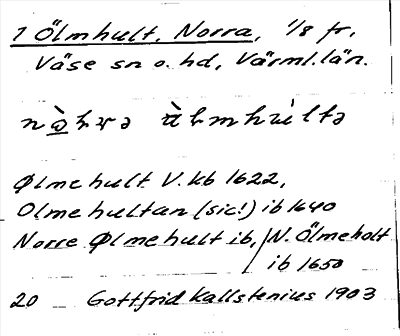 1 Ölmhult, Norra, 1/8 fr,
Väse sn o. hd, Värml. län.
Ølmehult V. kb 1622,
Olmehultan (sic!) ib 1640
Norre Ølmehult ib, / N. Ölmeholt
ib 1650
20 Gottfrid Kallstenius 1903